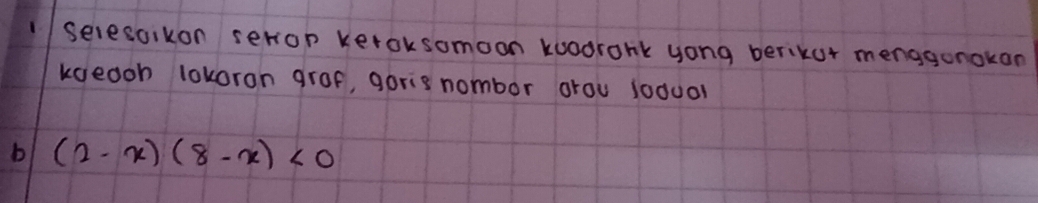 1 Selesaikan setiap ketaksamaan kuadratik yang berikut menggunakan
kaedah lakaran graf, garis nombor atau jadual
b (2 - x) (8 - x) < 0